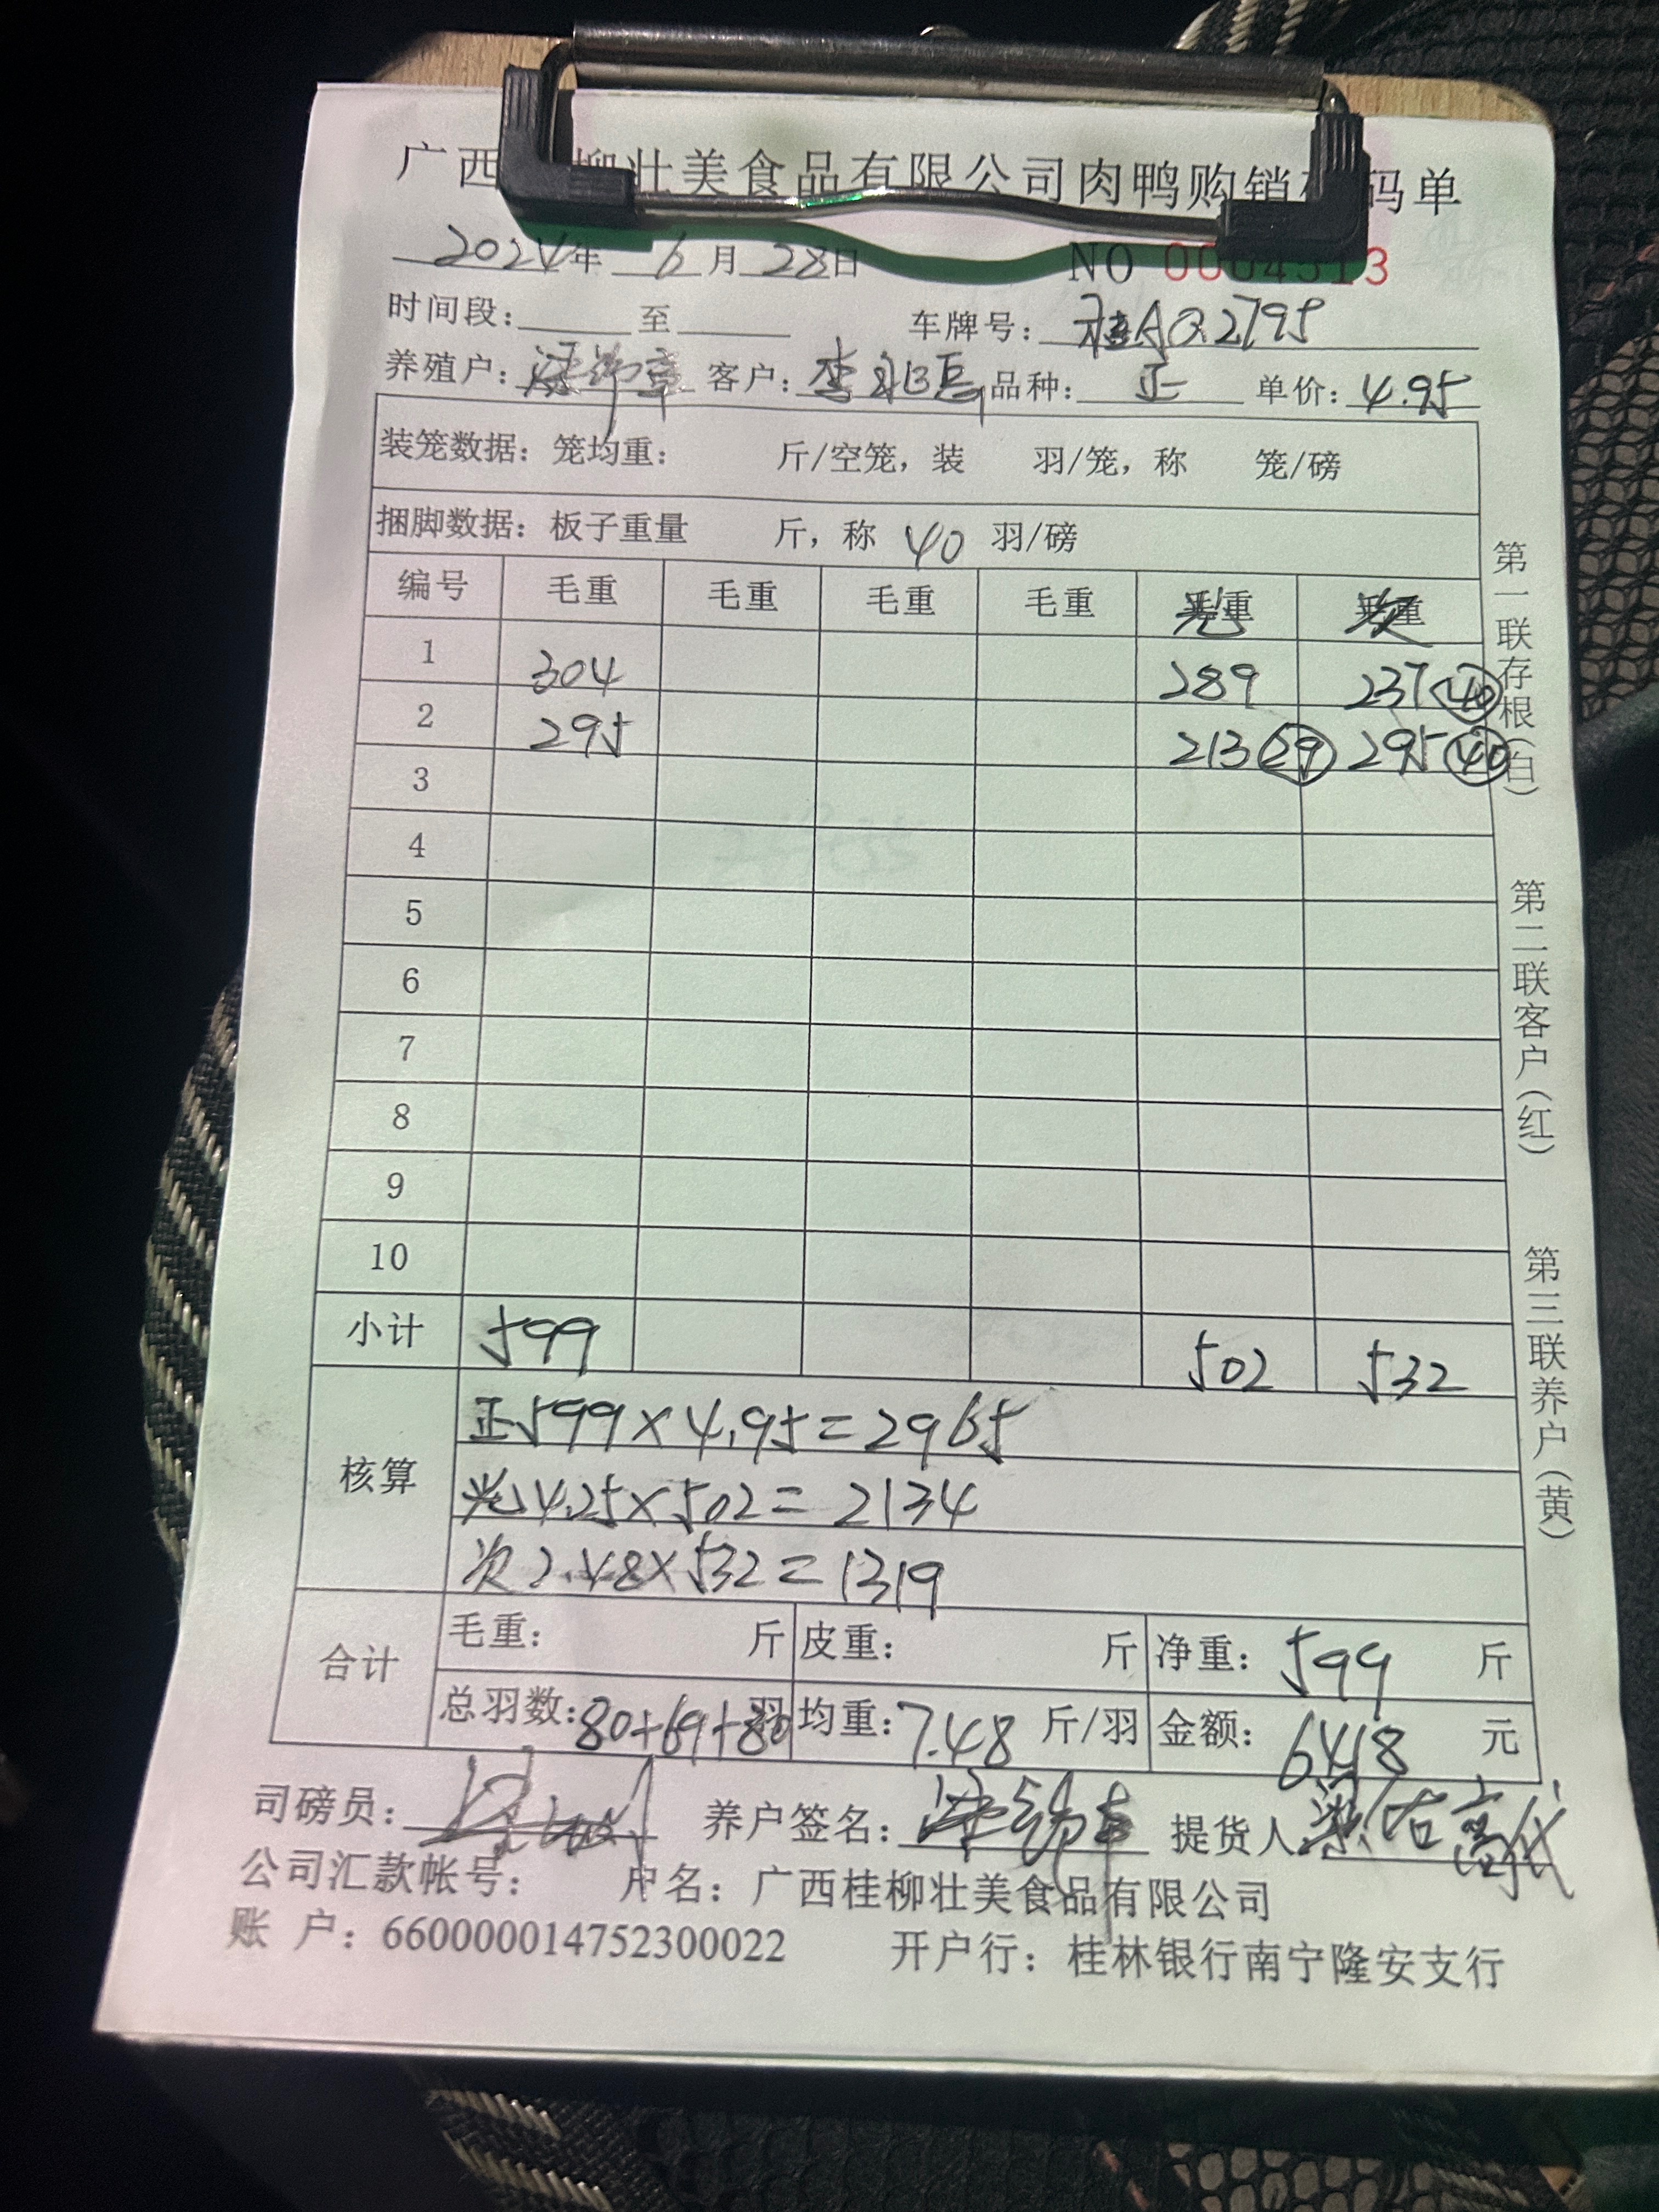 广西 柳壮美食品有限公司肉鸭购销 码单
2024年 6月28日 NO 0004513
时间段: 至 车牌号: 桂AQ2795
养殖户: 客户: 李 品种: 正 单价: 4.95
装笼数据: 笼均重: 斤/空笼, 装 羽/笼, 称 笼/磅
捆脚数据: 板子重量 斤, 称 40 羽/磅
编号 毛重 毛重 毛重 毛重 光 次
1 304 289 237 40
2 295 213 29 295 40
3
4
5
6
7
8
9
10
小计 599 502 532
核算 正599×4.95=2965
光4.25×502=2134
次2.48×532=1319
合计 毛重: 斤 皮重: 斤 净重: 599 斤
总羽数: 80+69+80 羽 均重: 7.48 斤/羽 金额: 6418 元
司磅员: 养户签名: 提货人:
公司汇款帐号: 户名: 广西桂柳壮美食品有限公司
账 户: 660000014752300022 开户行: 桂林银行南宁隆安支行
第一联存根(白) 第二联客户(红) 第三联养户(黄)